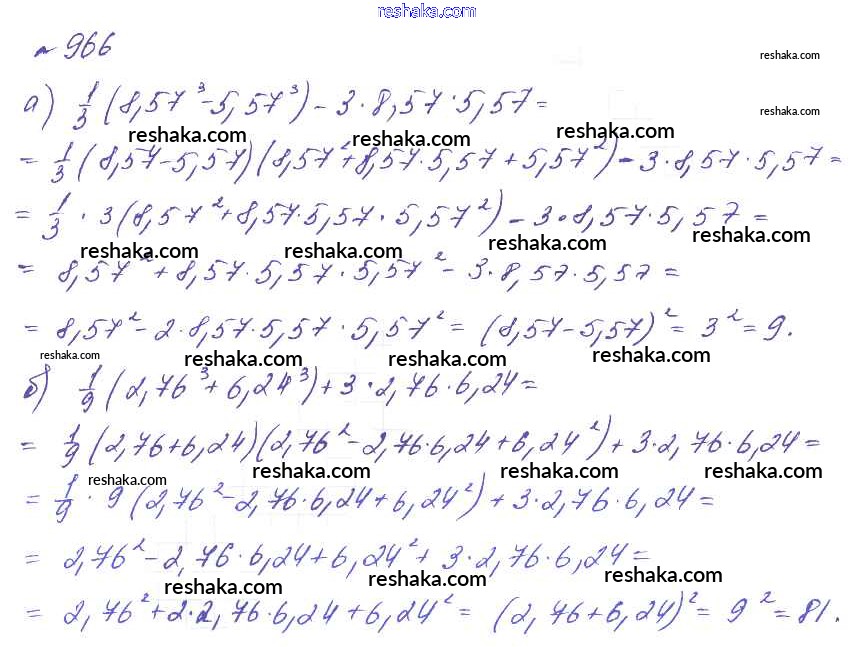 reshaka.com
№ 966
reshaka.com
а) 1/3 (8,57³ - 5,57³) - 3 · 8,57 · 5,57 =
reshaka.com
reshaka.com reshaka.com reshaka.com
= 1/3 (8,57 - 5,57)(8,57² + 8,57 · 5,57 + 5,57²) - 3 · 8,57 · 5,57 =
= 1/3 · 3 (8,57² + 8,57 · 5,57 · 5,57²) - 3 · 8,57 · 5,57 =
reshaka.com reshaka.com reshaka.com reshaka.com
= 8,57² + 8,57 · 5,57 · 5,57² - 3 · 8,57 · 5,57 =
= 8,57² - 2 · 8,57 · 5,57 · 5,57² = (8,57 - 5,57)² = 3² = 9.
reshaka.com reshaka.com reshaka.com reshaka.com
б) 1/9 (2,76³ + 6,24³) + 3 · 2,76 · 6,24 =
= 1/9 (2,76 + 6,24)(2,76² - 2,76 · 6,24 + 6,24²) + 3 · 2,76 · 6,24 =
reshaka.com reshaka.com reshaka.com reshaka.com
= 1/9 · 9 (2,76² - 2,76 · 6,24 + 6,24²) + 3 · 2,76 · 6,24 =
= 2,76² - 2,76 · 6,24 + 6,24² + 3 · 2,76 · 6,24 =
reshaka.com reshaka.com reshaka.com
= 2,76² + 2 · 2,76 · 6,24 + 6,24² = (2,76 + 6,24)² = 9² = 81.